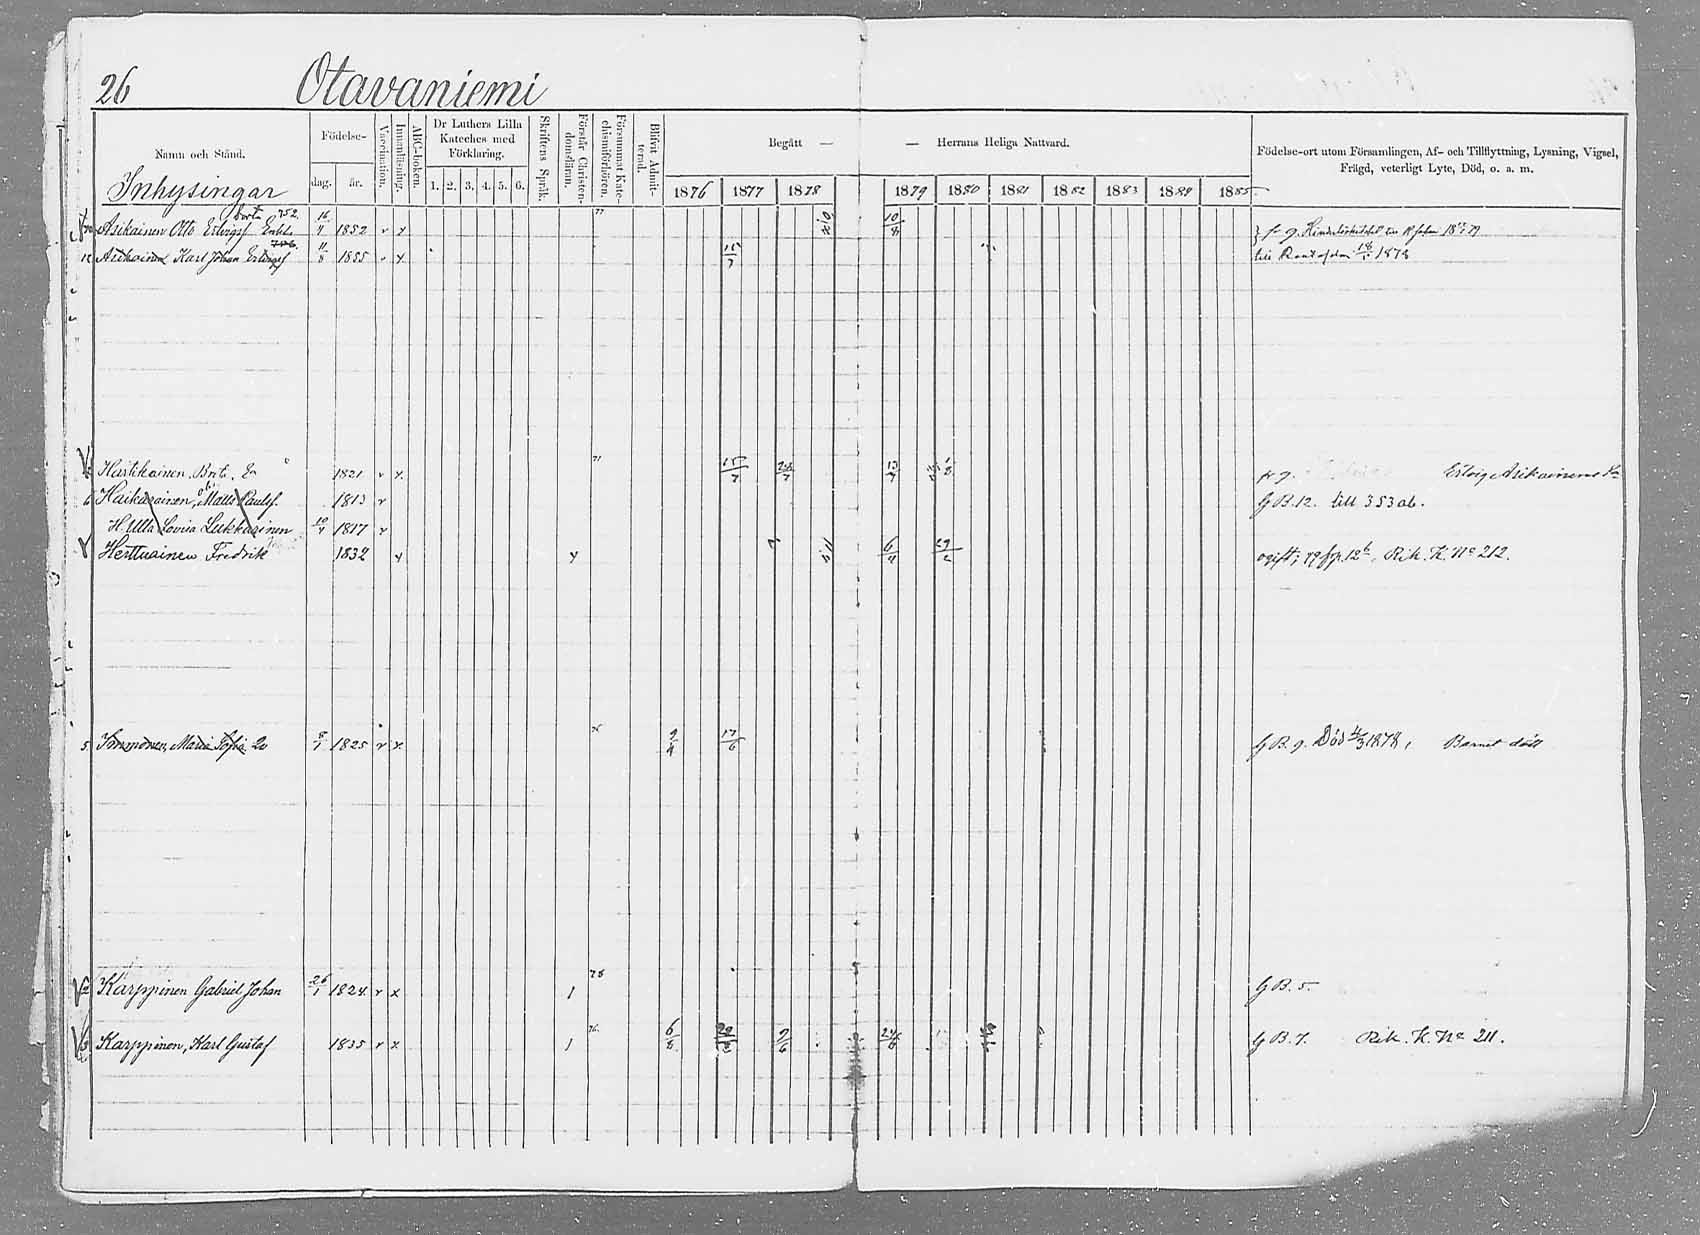 26 Otavaniemi
Namn och Stånd.
Födelse-
dag. år.
Vaccination.
Innanläsning.
ABC-boken.
Dr Luthers Lilla
Kateches med
Förklaring.
1. 2. 3. 4. 5. 6.
Skriftens Språk.
Förstår Christen-
domsläran.
Försummat Kate-
chismiförhören.
Blifvit Admit-
terad.
Begått — — Herrans Heliga Nattvard.
1876 1877 1878 1879 1880 1881 1882 1883 1884 1885
Födelse-ort utom Församlingen, Af- och Tillflyttning, Lysning, Vigsel,
Frägd, veterligt Lyte, Död, o. a. m.
Inhysingar
borta 752.
Asikainen Otto Erlvigsf Enkl. 16/4 1852 v x 10/8
Asikainen Karl Johan 11/8 1855 v x 15/7 1878
Hartikainen Brit. En 1821 v x 15/7 13/7 Asikainens
6 Haikarainen, Matts Paulsf. 1813 v G B. 12. till 353 ab.
H. Ulla Lovisa Lukkarinen 10/4 1817 v
Herttuainen Fredrik 1832 x y 6/4 29/2 ogift; Rik. K. No 212.
5 Immonen, Maria Sofia 8/1 1825 v x 9/4 17/6 G B. 9. Död 4/3 1878, Barnet dött
Karppinen Gabriel Johan 26/1 1824 v x 1 78 G B. 5.
Karppinen, Karl Gustaf 1835 v x 1 76. 6/8 9/6 24/8 G B. 7. Rik. K. No 211.